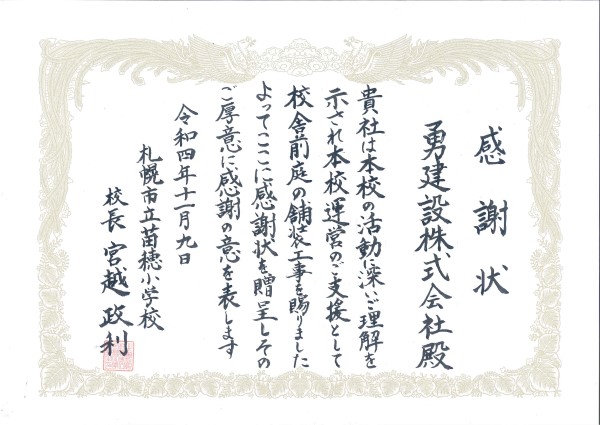 感謝状
勇建設株式会社殿
貴社は本校の活動に深いご理解を
示され本校運営のご支援として
校舎前庭の舗装工事を賜りました
よってここに感謝状を贈呈しその
ご厚意に感謝の意を表します
令和四年十一月九日
札幌市立苗穂小学校
校長 宮越政利